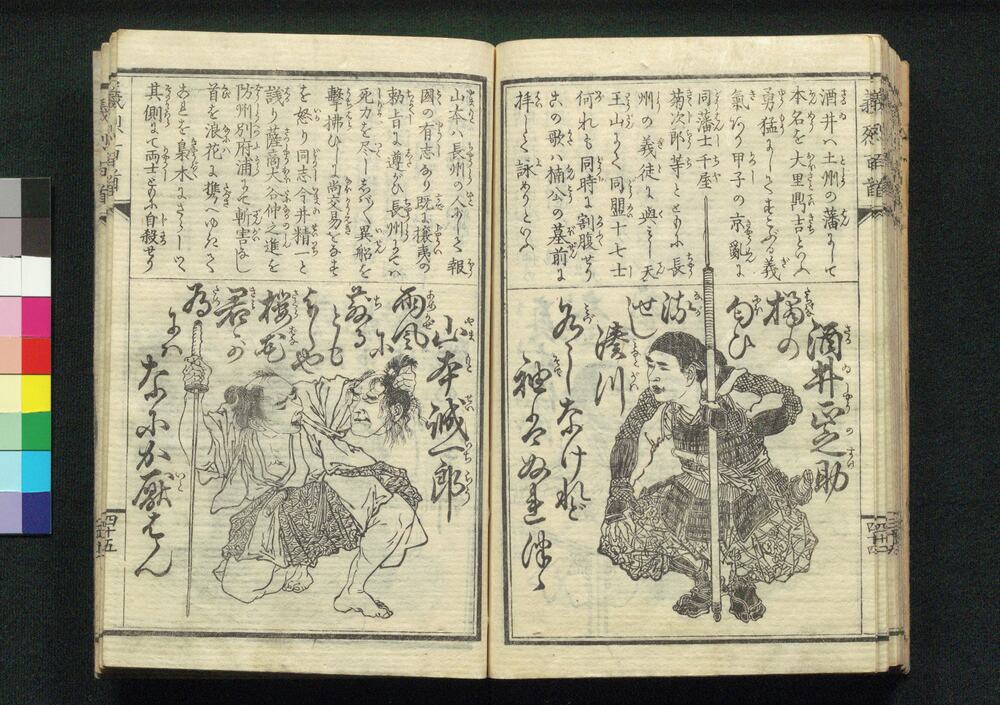 義烈百首
酒井ハ土州の藩にして
本名を大里興吉といふ
勇猛にしてすこぶる義
氣あり甲子の京亂に
同藩士千屋
菊次郎等とともに長
州の義徒に與ミし天
王山にて同盟十七士
何れも同時に割腹せり
この歌ハ楠公の墓前に
拝して詠めりといふ
酒井正之助
橘の
匂ひ
流
せし
湊川
なけれど
袖はぬれ
四十四
山本ハ長州の人にして報
國の有志なり既に攘夷の
勅旨に遵がひ長州にてハ
死力を尽ししばしば異船を
撃拂ひしに尚交易をなす
を怒り同志今井精一と
議り薩商大谷仲之進を
防州別府浦にて斬害なし
首を浪花に携へゆきて
これを梟木にさらしつつ
其側にて両士ともに自殺せり
山本誠一郎
雨風
に
散る
とも
よしや
桜花
君が
為
にハ
なにか厭はん
四十五
義烈百首